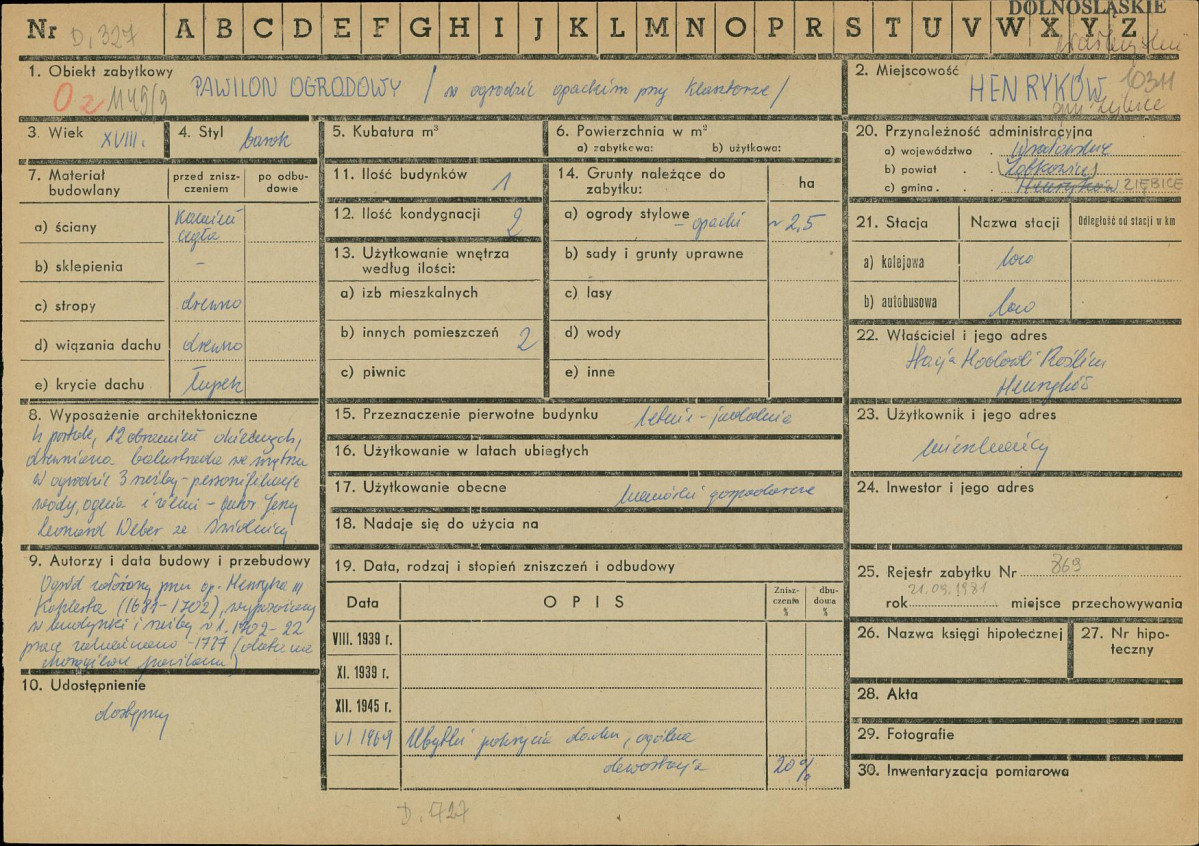 DOLNOSLĄSKIE
Nr D. 327 A B C D E F G H I J K L M N O P R S T U V W X Y Z
1. Obiekt zabytkowy
PAWILON OGRODOWY / w ogrodzie opackim przy klasztorze /
O 2 1149/9
2. Miejscowość
HENRYKÓW
gm. Ziębice
3. Wiek XVIII.
4. Styl barok
5. Kubatura m³
6. Powierzchnia w m²
a) zabytkowa: b) użytkowa:
7. Materiał budowlany
przed zniszczeniem
po odbudowie
a) ściany kamień cegła
b) sklepienia –
c) stropy drewno
d) wiązania dachu drewno
e) krycie dachu łupek
11. Ilość budynków 1
12. Ilość kondygnacji 2
13. Użytkowanie wnętrza według ilości:
a) izb mieszkalnych
b) innych pomieszczeń 2
c) piwnic
14. Grunty należące do zabytku: ha
a) ogrody stylowe – opacki ~ 2,5
b) sady i grunty uprawne
c) lasy
d) wody
e) inne
20. Przynależność administracyjna
a) województwo . wrocławskie
b) powiat . . (Ząbkowice)
c) gmina . . Henryków ZIĘBICE
21. Stacja Nazwa stacji Odległość od stacji w km
a) kolejowa loco
b) autobusowa loco
22. Właściciel i jego adres
Stacja Hodowli Roślin
Henryków
8. Wyposażenie architektoniczne
4 portale, 12 obramień okiennych,
drewniana balustrada we wnętrzu
W ogrodzie 3 rzeźby – personifikacje
wody, ognia i ziemi – autor Jerzy
Leonard Weber ze Świdnicy
15. Przeznaczenie pierwotne budynku letnia – jadalnia
16. Użytkowanie w latach ubiegłych
17. Użytkowanie obecne komórki gospodarcze
18. Nadaje się do użycia na
23. Użytkownik i jego adres
mieszkańcy
24. Inwestor i jego adres
9. Autorzy i data budowy i przebudowy
Ogród założony przez op. Henryka III
Kahlerta (1681–1702), wyposażony
w budynki i rzeźby w l. 1702–22
prace zakończono – 1727 (data na
chorągiewce pawilonu)
10. Udostępnienie
dostępny
19. Data, rodzaj i stopień zniszczeń i odbudowy
Data OPIS Zniszczenia % dbudowa %
VIII. 1939 r.
XI. 1939 r.
XII. 1945 r.
VI 1969 Ubytki pokrycia dachu, ogólna
dewastacja 20%
25. Rejestr zabytku Nr 869
rok 21.09.1981 miejsce przechowywania
26. Nazwa księgi hipotecznej
27. Nr hipoteczny
28. Akta
29. Fotografie
30. Inwentaryzacja pomiarowa
D. 727